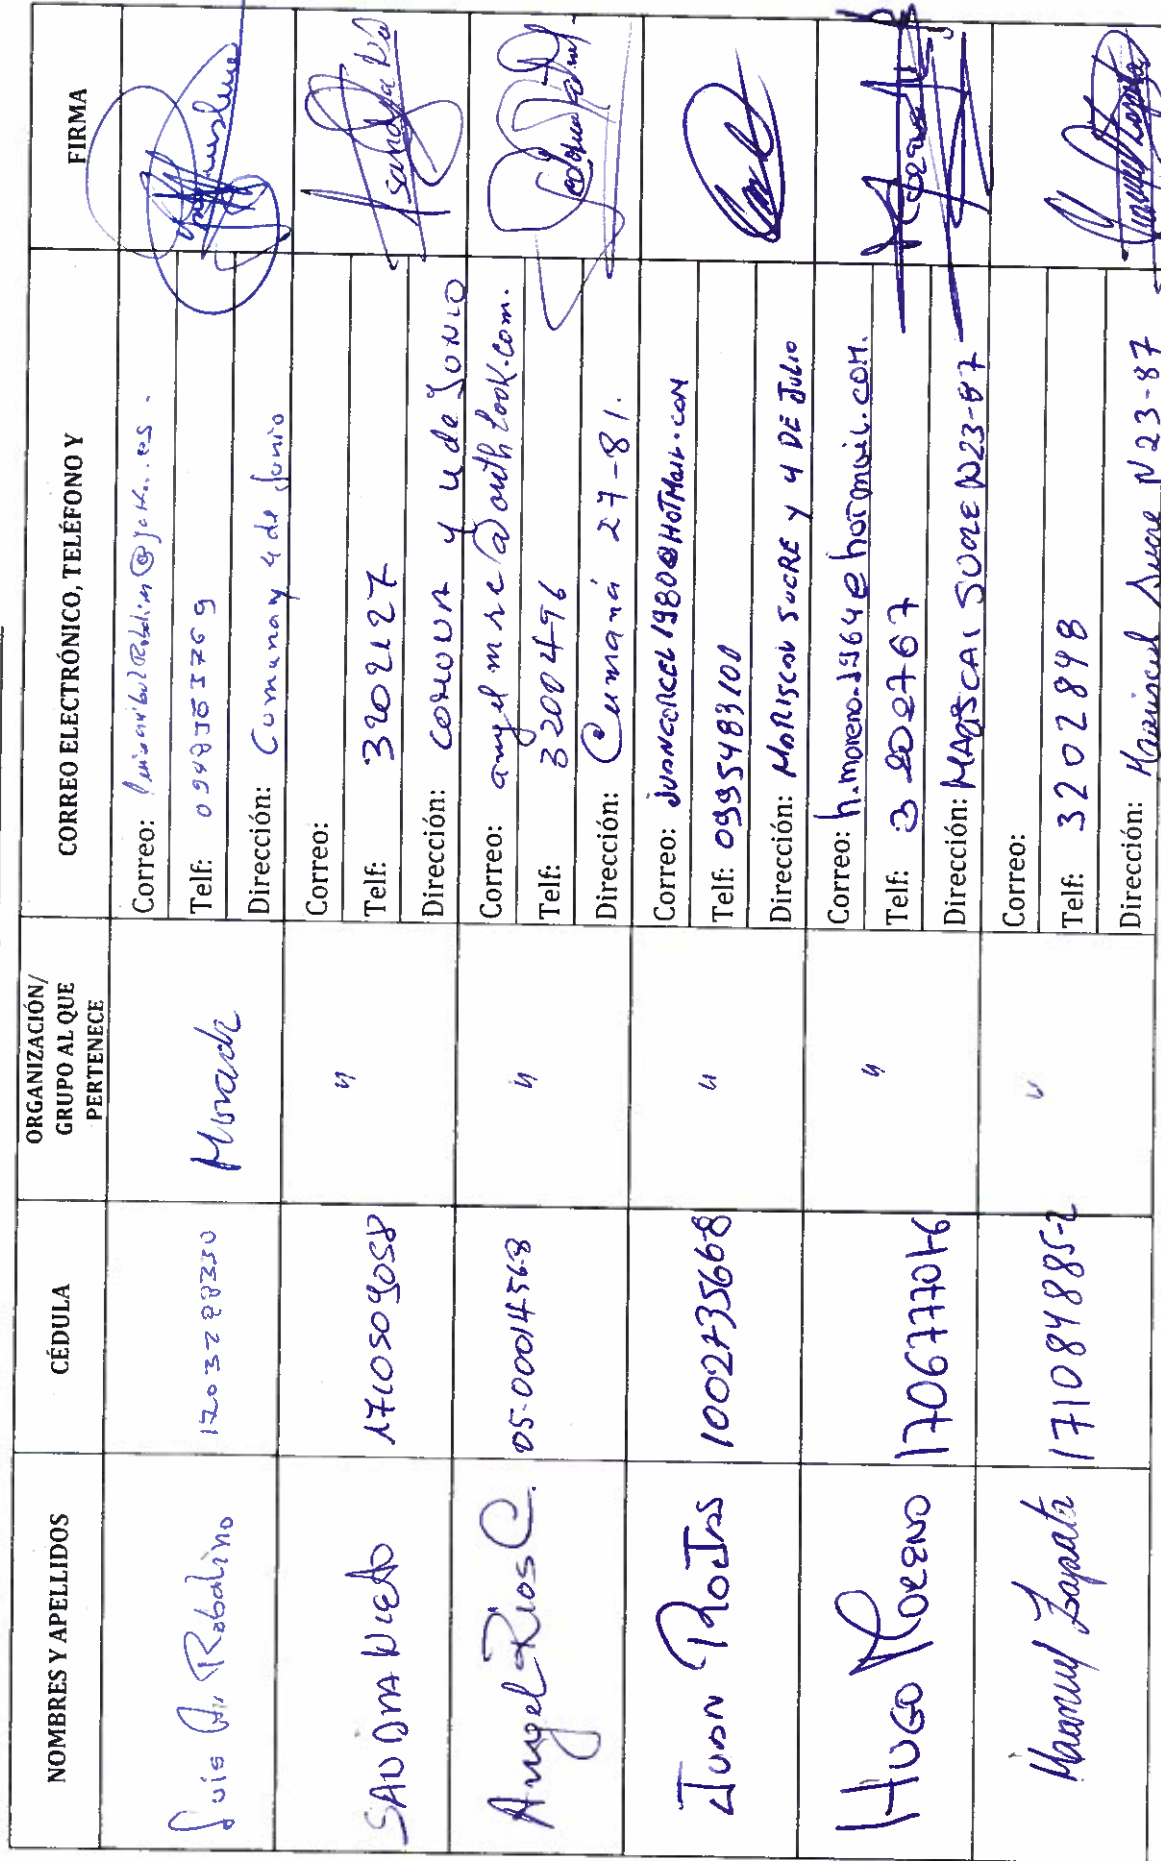 NOMBRES Y APELLIDOS
CÉDULA
ORGANIZACIÓN/
GRUPO AL QUE
PERTENECE
CORREO ELECTRÓNICO, TELÉFONO Y
FIRMA
Luis A. Robalino
Correo:
Telf:
Dirección: Cumuna y 4 de Junio
SANDRA NIETO
1710509058
"
Correo:
Telf: 3202127
Dirección: y 4 de JUNIO
Angel Rios C.
05-00014568
"
Correo: angel mrc@outhlook.com.
Telf: 3200496
Dirección: Cumaná 27-81.
JUAN ROJAS
1002735668
"
Correo: JUANCARCEL1980@HOTMAIL.COM
Telf: 0995483100
Dirección: MARISCAL SUCRE Y 4 DE JULIO
HUGO MORENO
1706777076
"
Correo: h.moreno.1964@hotmail.com.
Telf: 3202767
Dirección: MARSCAL SUCRE N23-87
Manuel Zapata
171084885-2
"
Correo:
Telf: 3202848
Dirección: Mariscal Sucre N23-87